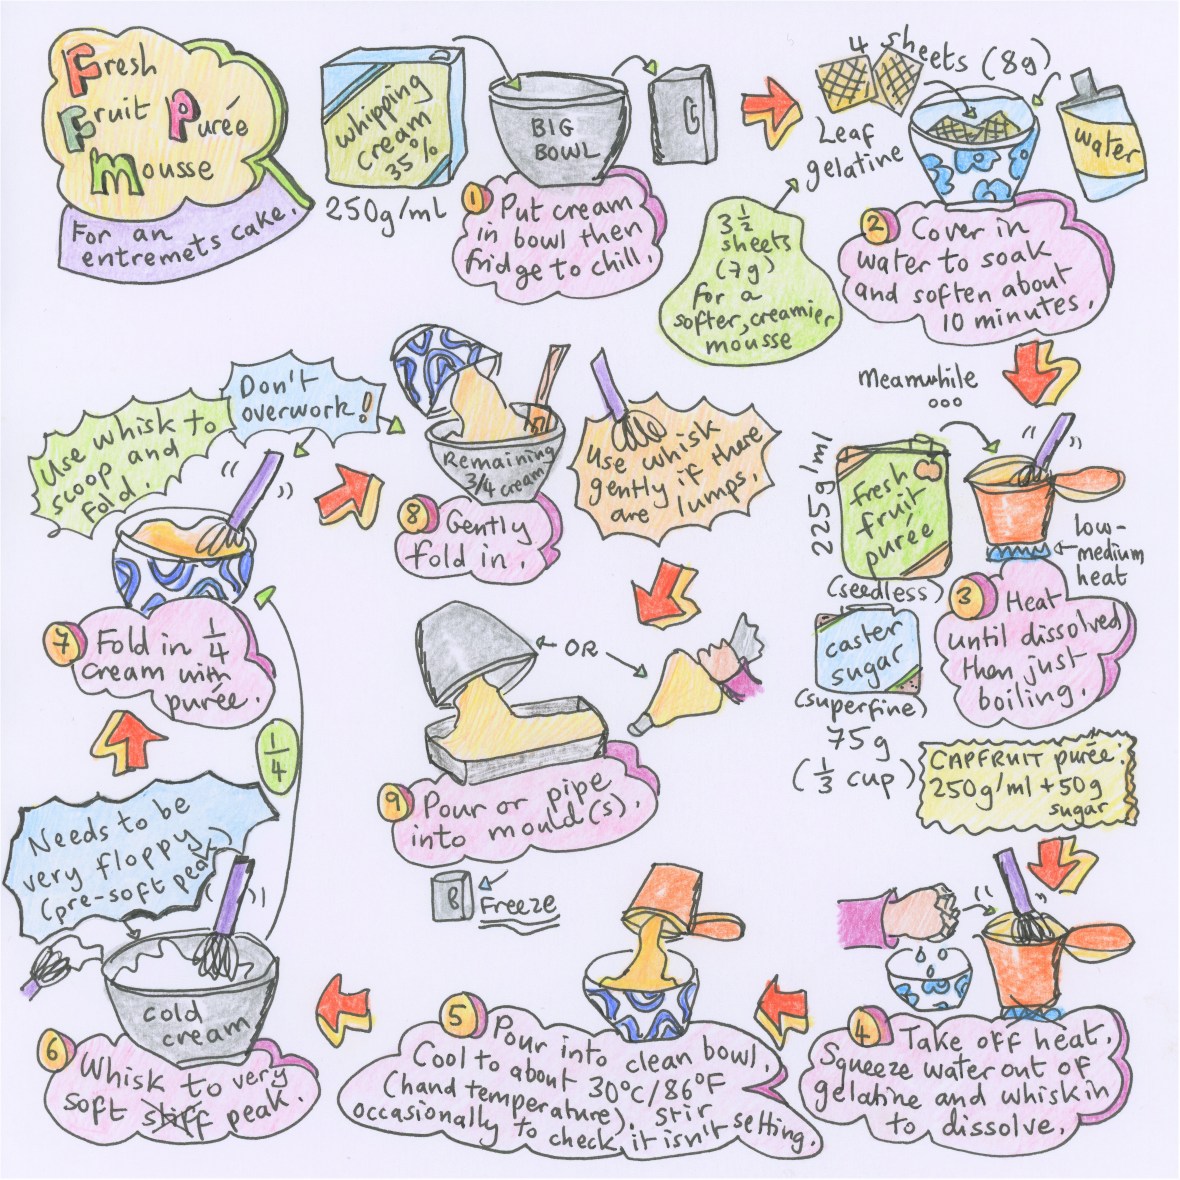 Fresh
Fruit Purée
Mousse
For an
entremets cake.
whipping
cream
35%
250g/ml
BIG
BOWL
1 Put cream
in bowl then
fridge to chill.
4 sheets (8g)
Leaf
gelatine
water
3 1/2
sheets
(7g)
for a
softer, creamier
mousse
2 Cover in
water to soak
and soften about
10 minutes.
Meanwhile
ooo
225g/ml
fresh
fruit
purée
(seedless)
low-
medium
heat
caster
sugar
(superfine)
75g
(1/3 cup)
3 Heat
until dissolved
then just
boiling.
CAPFRUIT purée:
250g/ml + 50g
sugar
4 Take off heat.
Squeeze water out of
gelatine and whisk in
to dissolve.
5 Pour into clean bowl.
Cool to about 30°C/86°F
(hand temperature). Stir
occasionally to check it isn't setting.
Needs to be
very floppy
(pre-soft peak)
cold
cream
6 Whisk to very
soft stiff peak.
1/4
Use whisk to
scoop and
fold.
Don't
overwork!
7 Fold in 1/4
cream with
purée.
Remaining
3/4 cream
8 Gently
fold in.
Use whisk
gently if there
are lumps.
OR
9 Pour or pipe
into mould(s).
Freeze